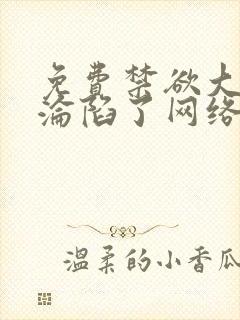 免費禁欲大
淪陷了网络
温柔的小香瓜